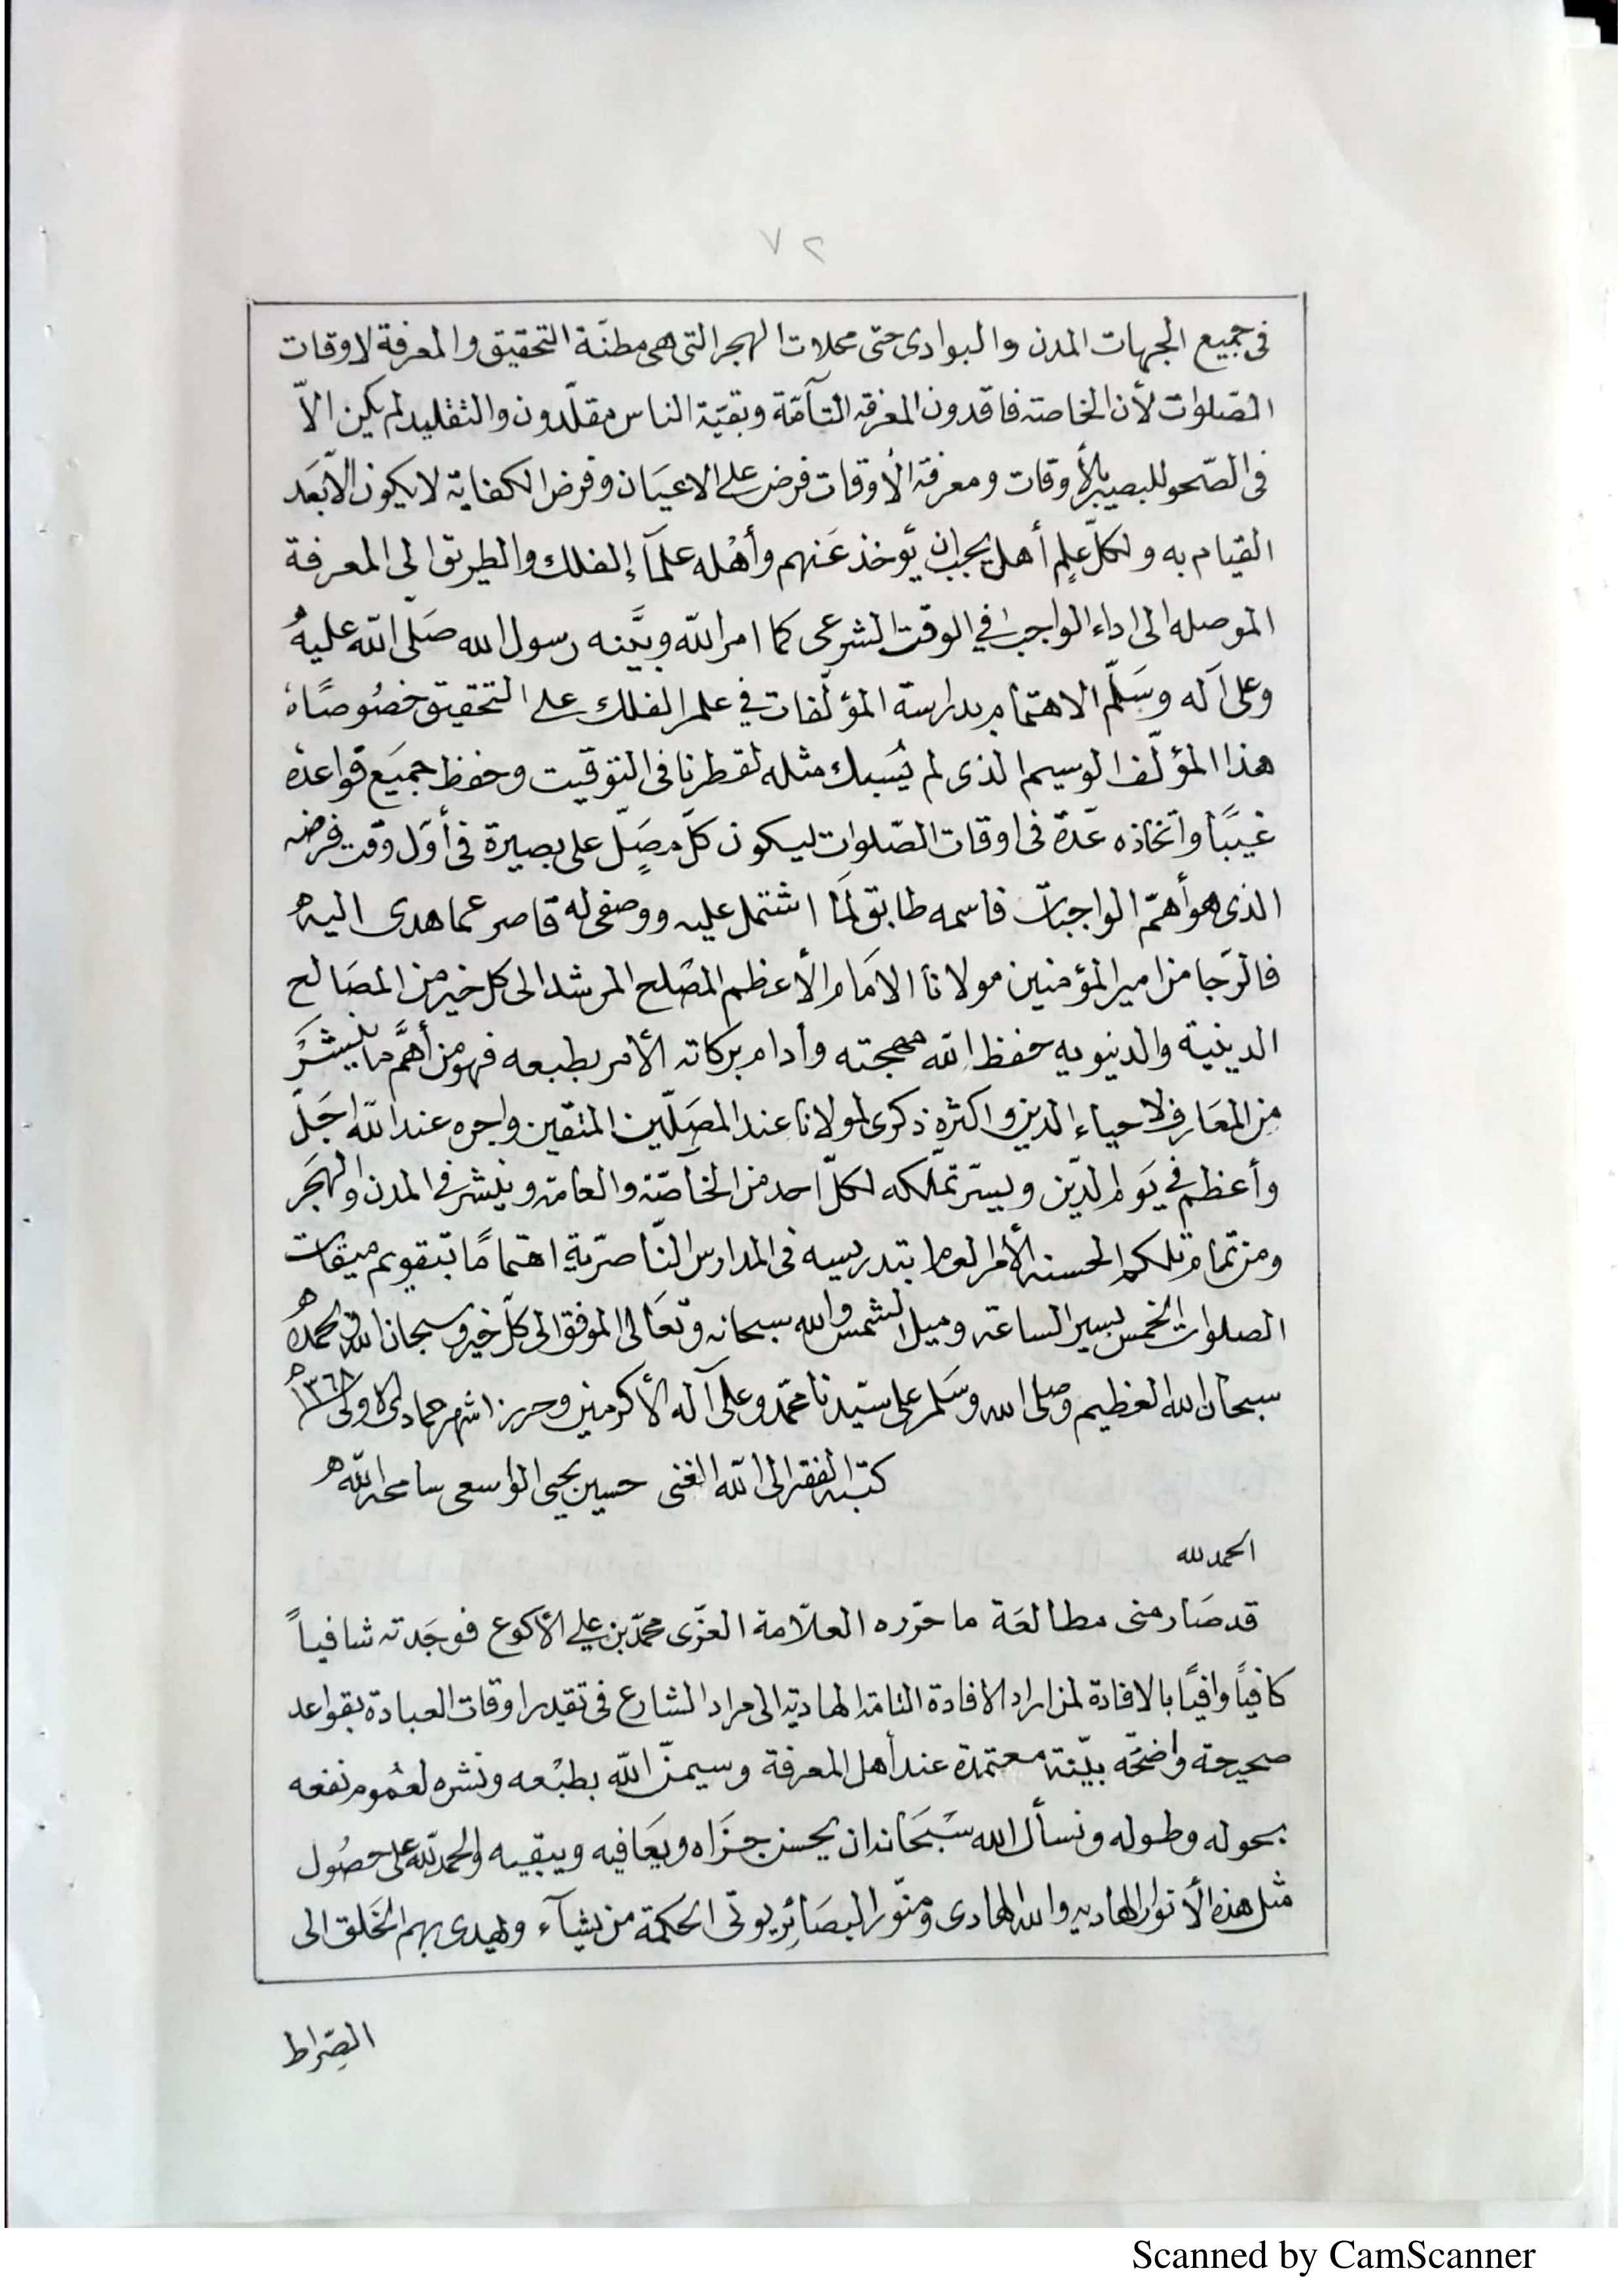 ٧٢
في جميع الجهات المدن والبوادى حتى محلات الهجر التى هى مظنّة التحقيق والمعرفة لاوقات
الصّلوات لأن الخاصة فاقدون المعرفة التآمّة وبقيّة الناس مقلّدون والتقليد لم يكن الاّ
فى الصّحو للبصير بالأوقات ومعرفة الأوقات فرض على الاعيَان وفرض الكفاية لا يكون الاّ بَعَد
القيام به ولكلّ علمٍ أهل يجب ان يّؤخذ عَنهم وأهْله علمآء الفلك والطريق الى المعرفة
الموصله الى اداء الواجب في الوقت الشرعى كما امر اللّه وبيَّنه رسول الله صَلّى اللّه عليهُ
وعلى آله وسَلّم الاهتمام بدراسة المؤلّفات في علم الفلك على التحقيق خصُوصًا
هذا المؤلّف الوسيم الذى لم يُسبك مثله لقطرنا فى التوقيت وحفظ جميَع قواعده
غيبًا واتّخاذه عدّة فى اوقات الصّلوات ليكون كلّ مصَلٍّ على بصيرة فى أوّل وقت فرضه
الذى هو أهمّ الواجبات فاسمه طابق لمَا اشتمل عليه ووصفى له قاصر عما هدى اليه
فالرّجا من امير المؤمنين مولانا الامَام الأعظم المصْلح المرشد الى كل خير من المصَالح
الدينية والدنيويه حفظ اللّه مهجته وأدام بركاته الأمر بطبعه فهو من أهمَّ ما يُنشَرَ
من المعَارف لاحياء الدين واكثره ذكرى لمولانا عند المصَلّين المتقين واجره عند اللّه اجَلّ
وأعظم في يَوم الدّين وييسّر تملّكه لكلّ احد من الخآصّة والعامة وينشر في المدن والهجَر
ومن تمام تلك الحسنه الأمر العام بتدريسه فى المدارس النّاصريّة اهتمامًا بتقويم ميقات
الصلوات الخمس بسير الساعة وميل الشمس والله سبحانه وتعَالى الموفق الى كلّ خير وسبحان الله وبحمده
سبحان الله العظيم وصلى الله وسَلم على سيّدنا محمّد وعلى آله الأكرمين وحرر شهر جمادى الاولى ١٣٦٨
كتبه الفقير الى اللّه الغنى حسين يحيى الواسعى سامحه اللّه
الحمد لله
قد صَار منى مطالعَة ما حرّره العلاّمة العزّى محمّد بن على الأكوع فوجَدته شافياً
كافيًا وافيًا بالافادة لمن اراد الافادة التامة الهادية الى مراد الشارع فى تقدير اوقات العبادة بقواعد
صحيحة واضحَة بيّنة معتمدة عند أهل المعرفة وسيمنّ اللّه بطبْعه ونشره لعُموم نفعه
بحوله وطوله ونسأل الله سُبْحَانه ان يحسن جزَاه ويعَافيه ويبقيه والحمد للّه على حصُول
مثل هذه الأنوار الهاديه والله الهادى ومنوّر البصَائِر يوتى الحكمة من يشآء ويهدى بهم الخَلق الى
الصّراط
Scanned by CamScanner